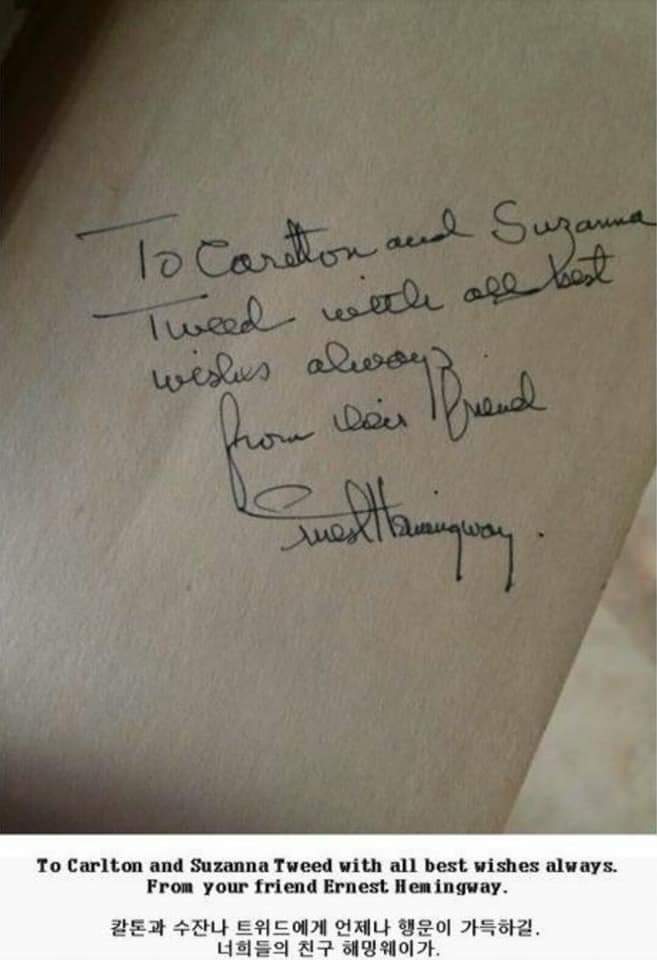 To Carlton and Suzanna
Tweed with all best
wishes always
from their friend
Ernest Hemingway.
To Carlton and Suzanna Tweed with all best wishes always.
From your friend Ernest Hemingway.
칼톤과 수잔나 트위드에게 언제나 행운이 가득하길.
너희들의 친구 해밍웨이가.